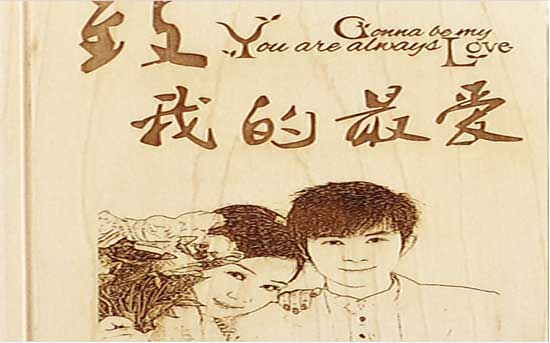 致
Gonna be my
You are always Love
我的最爱